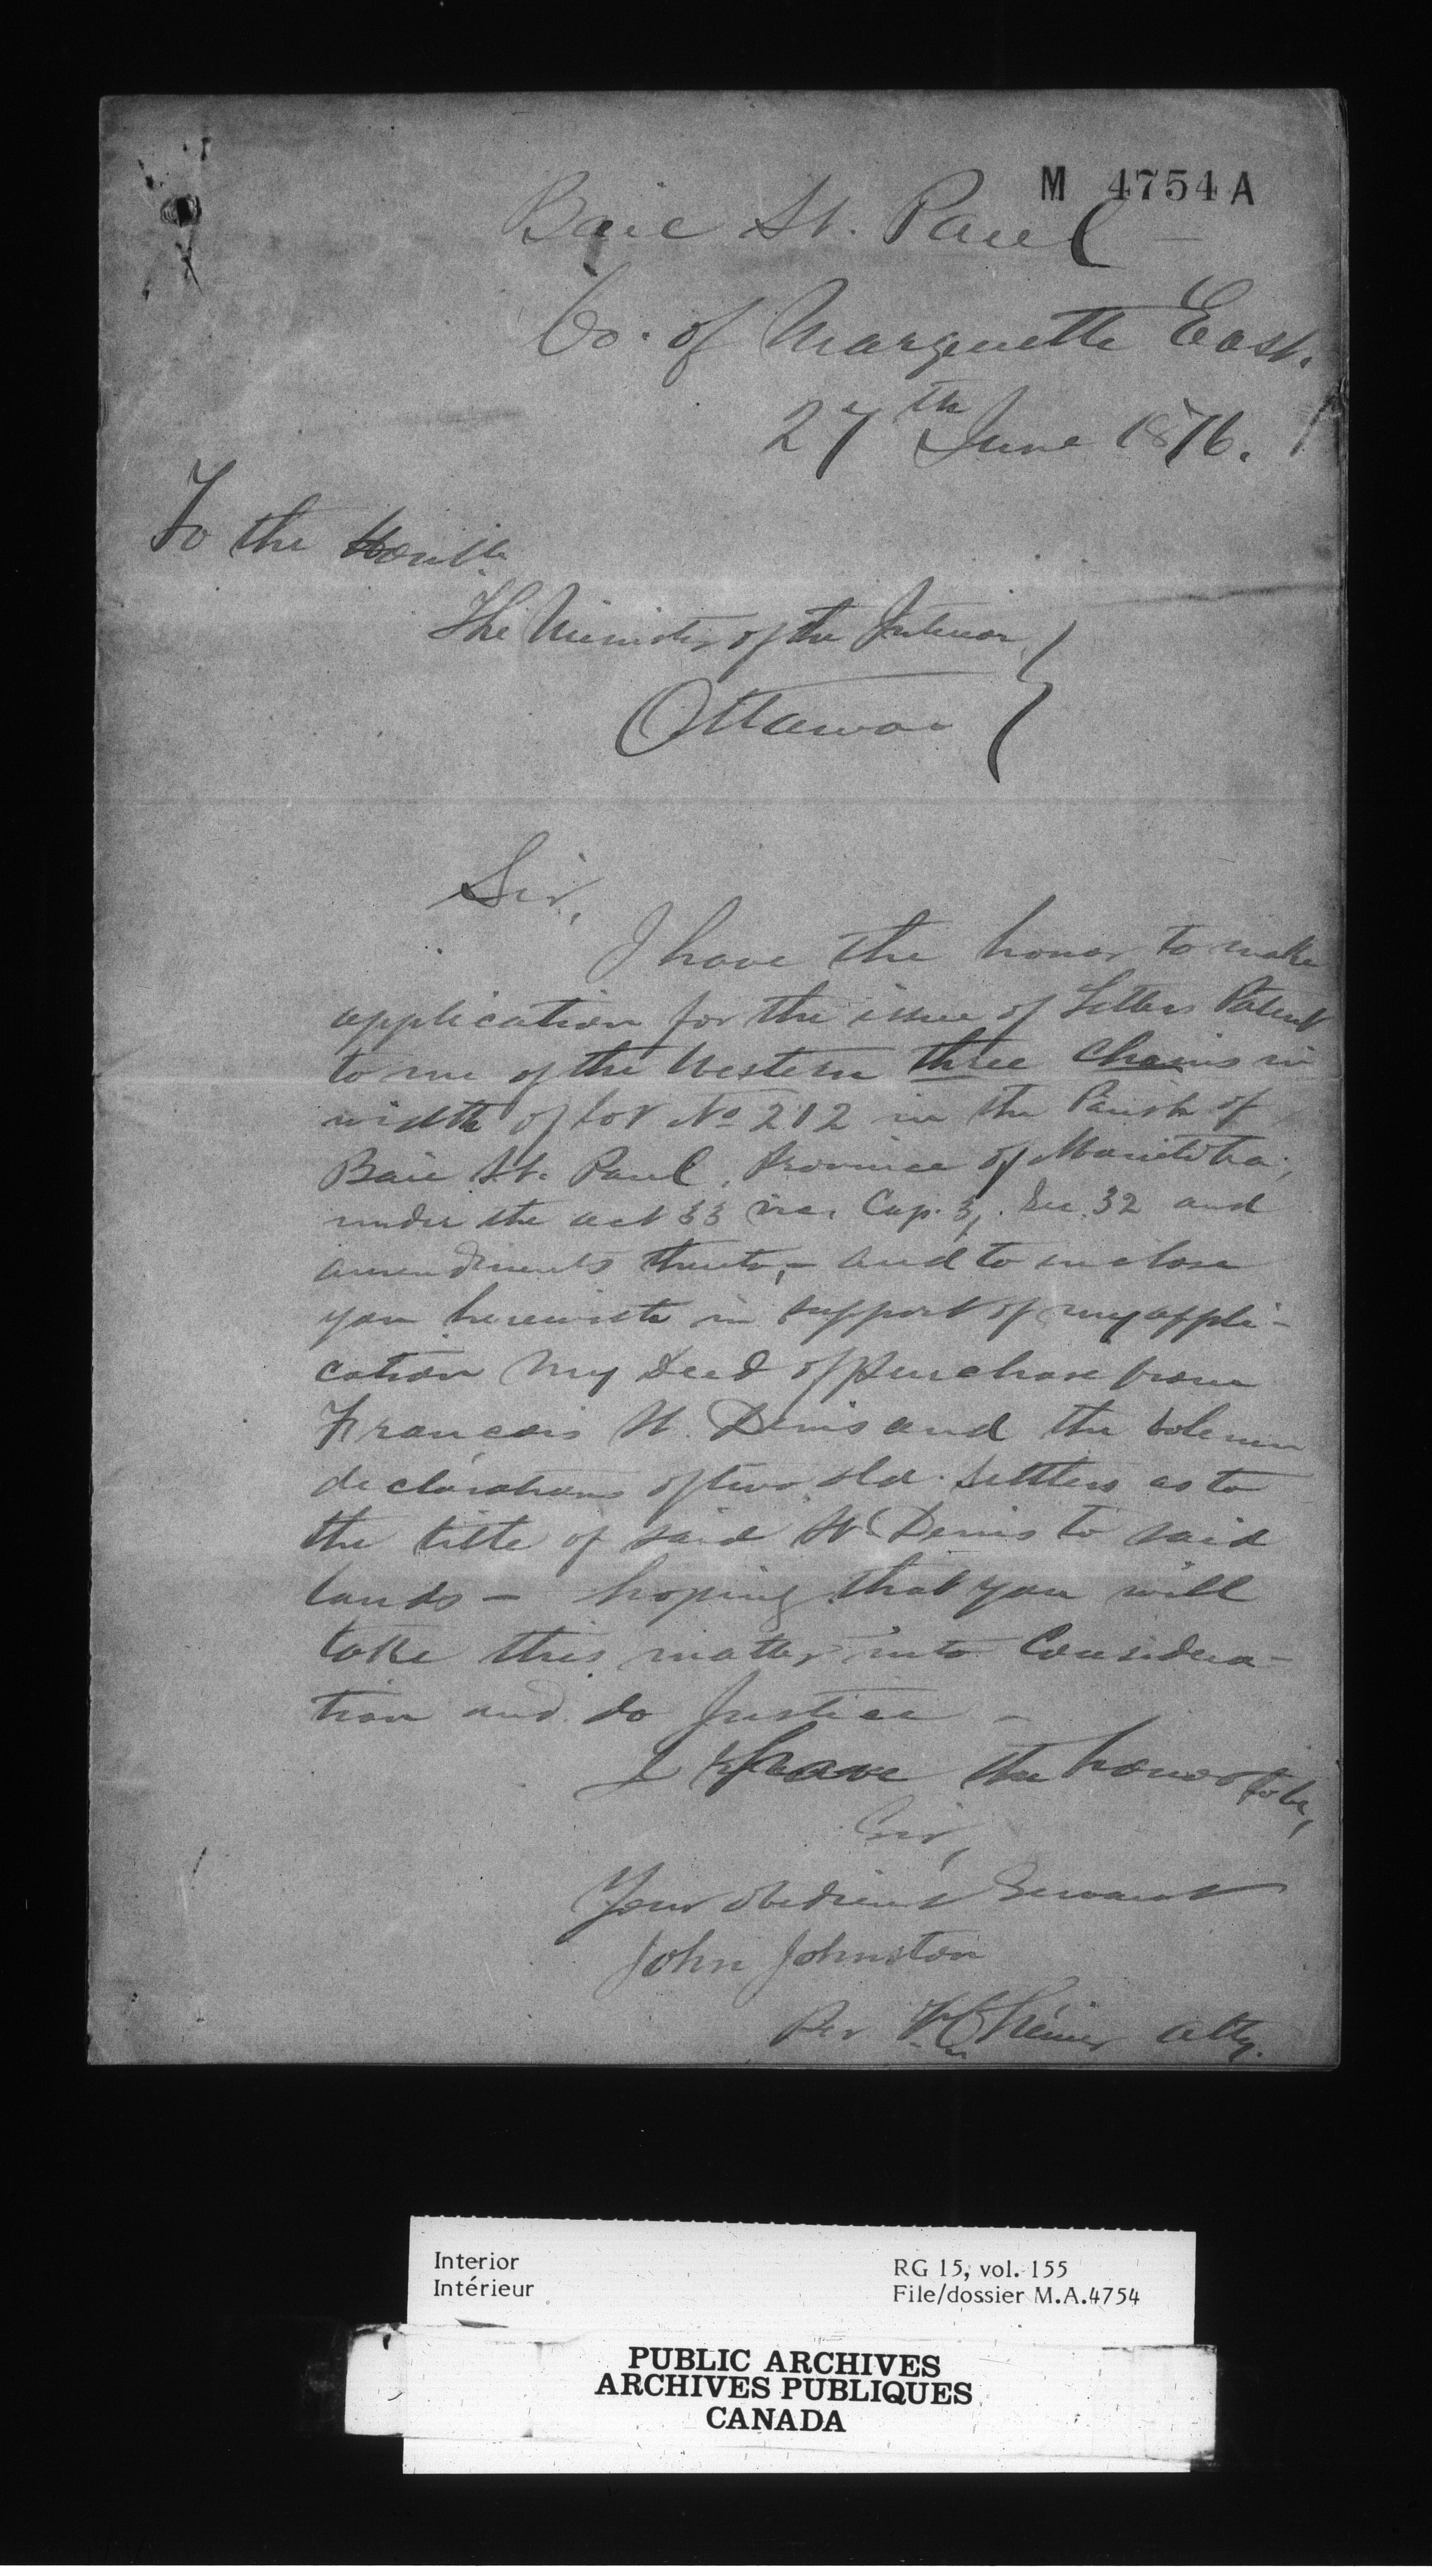 M 4754 A
Baie St. Paul —
Co. of Marquette East.
27th June 1876.
To the Honble
The Minister of the Interior
Ottawa
Sir,
I have the honor to make
application for the issue of Letters Patent
to me of the Western three Chains in
width of lot No 212 in the Parish of
Baie St. Paul, Province of Manitoba,
under the act 33 Vic. Cap. 3, Sec. 32 and
amendments thereto, — and to inclose
you herewith in support of my appli-
cation my Deed of purchase from
François St. Denis and the solemn
declarations of two old settlers as to
the title of said St. Denis to said
lands — hoping that you will
take this matter into Considera-
tion and do Justice —
I have the honor to be,
Sir,
Your obedient Servant
John Johnston
Per atty.
Interior
Intérieur
RG 15, vol. 155
File/dossier M.A.4754
PUBLIC ARCHIVES
ARCHIVES PUBLIQUES
CANADA